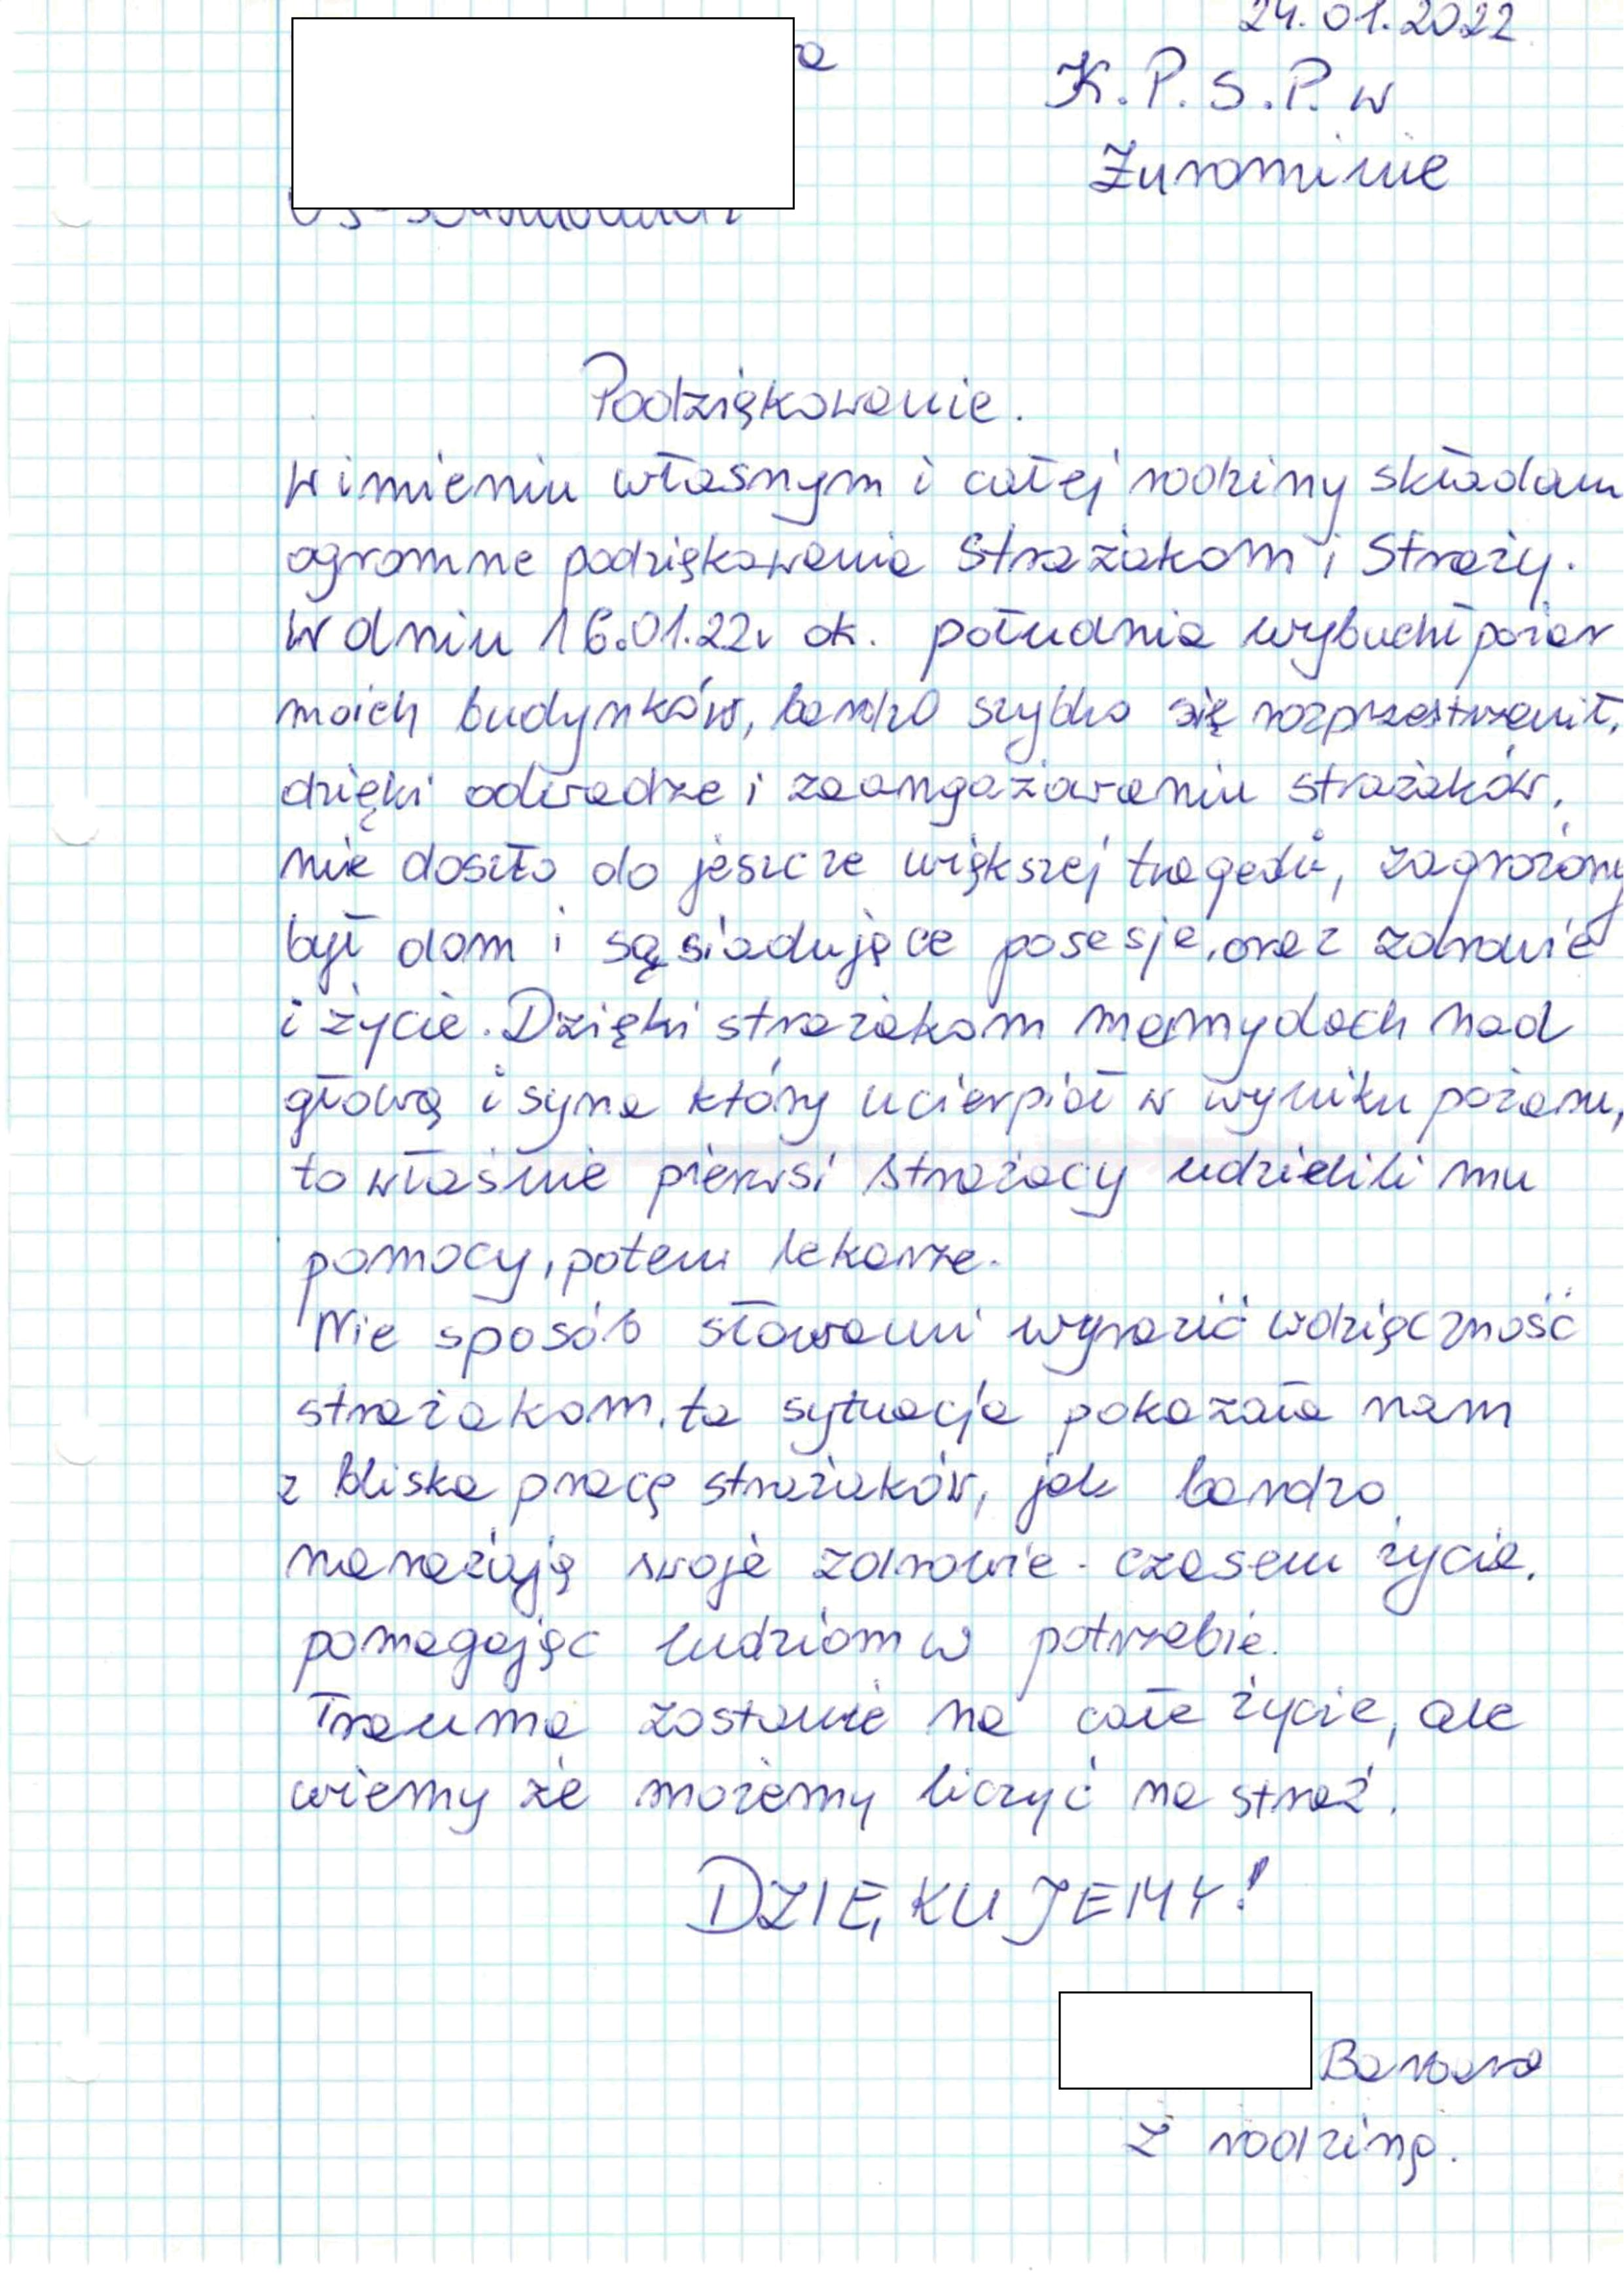 24.01.2022
K.P.S.P. w
Żurominie
Podziękowanie.
W imieniu własnym i całej rodziny składam
ogromne podziękowania Strażakom i Straży.
W dniu 16.01.22r ok. południa wybuchł pożar
moich budynków, bardzo szybko się rozprzestrzenił,
dzięki odwadze i zaangażowaniu strażaków,
nie doszło do jeszcze większej tragedii, zagrożony
był dom i sąsiadujące posesje, oraz zdrowie
i życie. Dzięki strażakom mamy dach nad
głową i syna który ucierpiał w wyniku pożaru,
to właśnie pierwsi strażacy udzielili mu
pomocy, potem lekarze.
Nie sposób słowami wyrazić wdzięczność
strażakom, ta sytuacja pokazała nam
z bliska pracę strażaków, jak bardzo
narażają swoje zdrowie - czasem życie,
pomagając ludziom w potrzebie.
Trauma zostanie na całe życie, ale
wiemy że możemy liczyć na straż.
DZIĘKUJEMY!
Barbara
z rodziną.